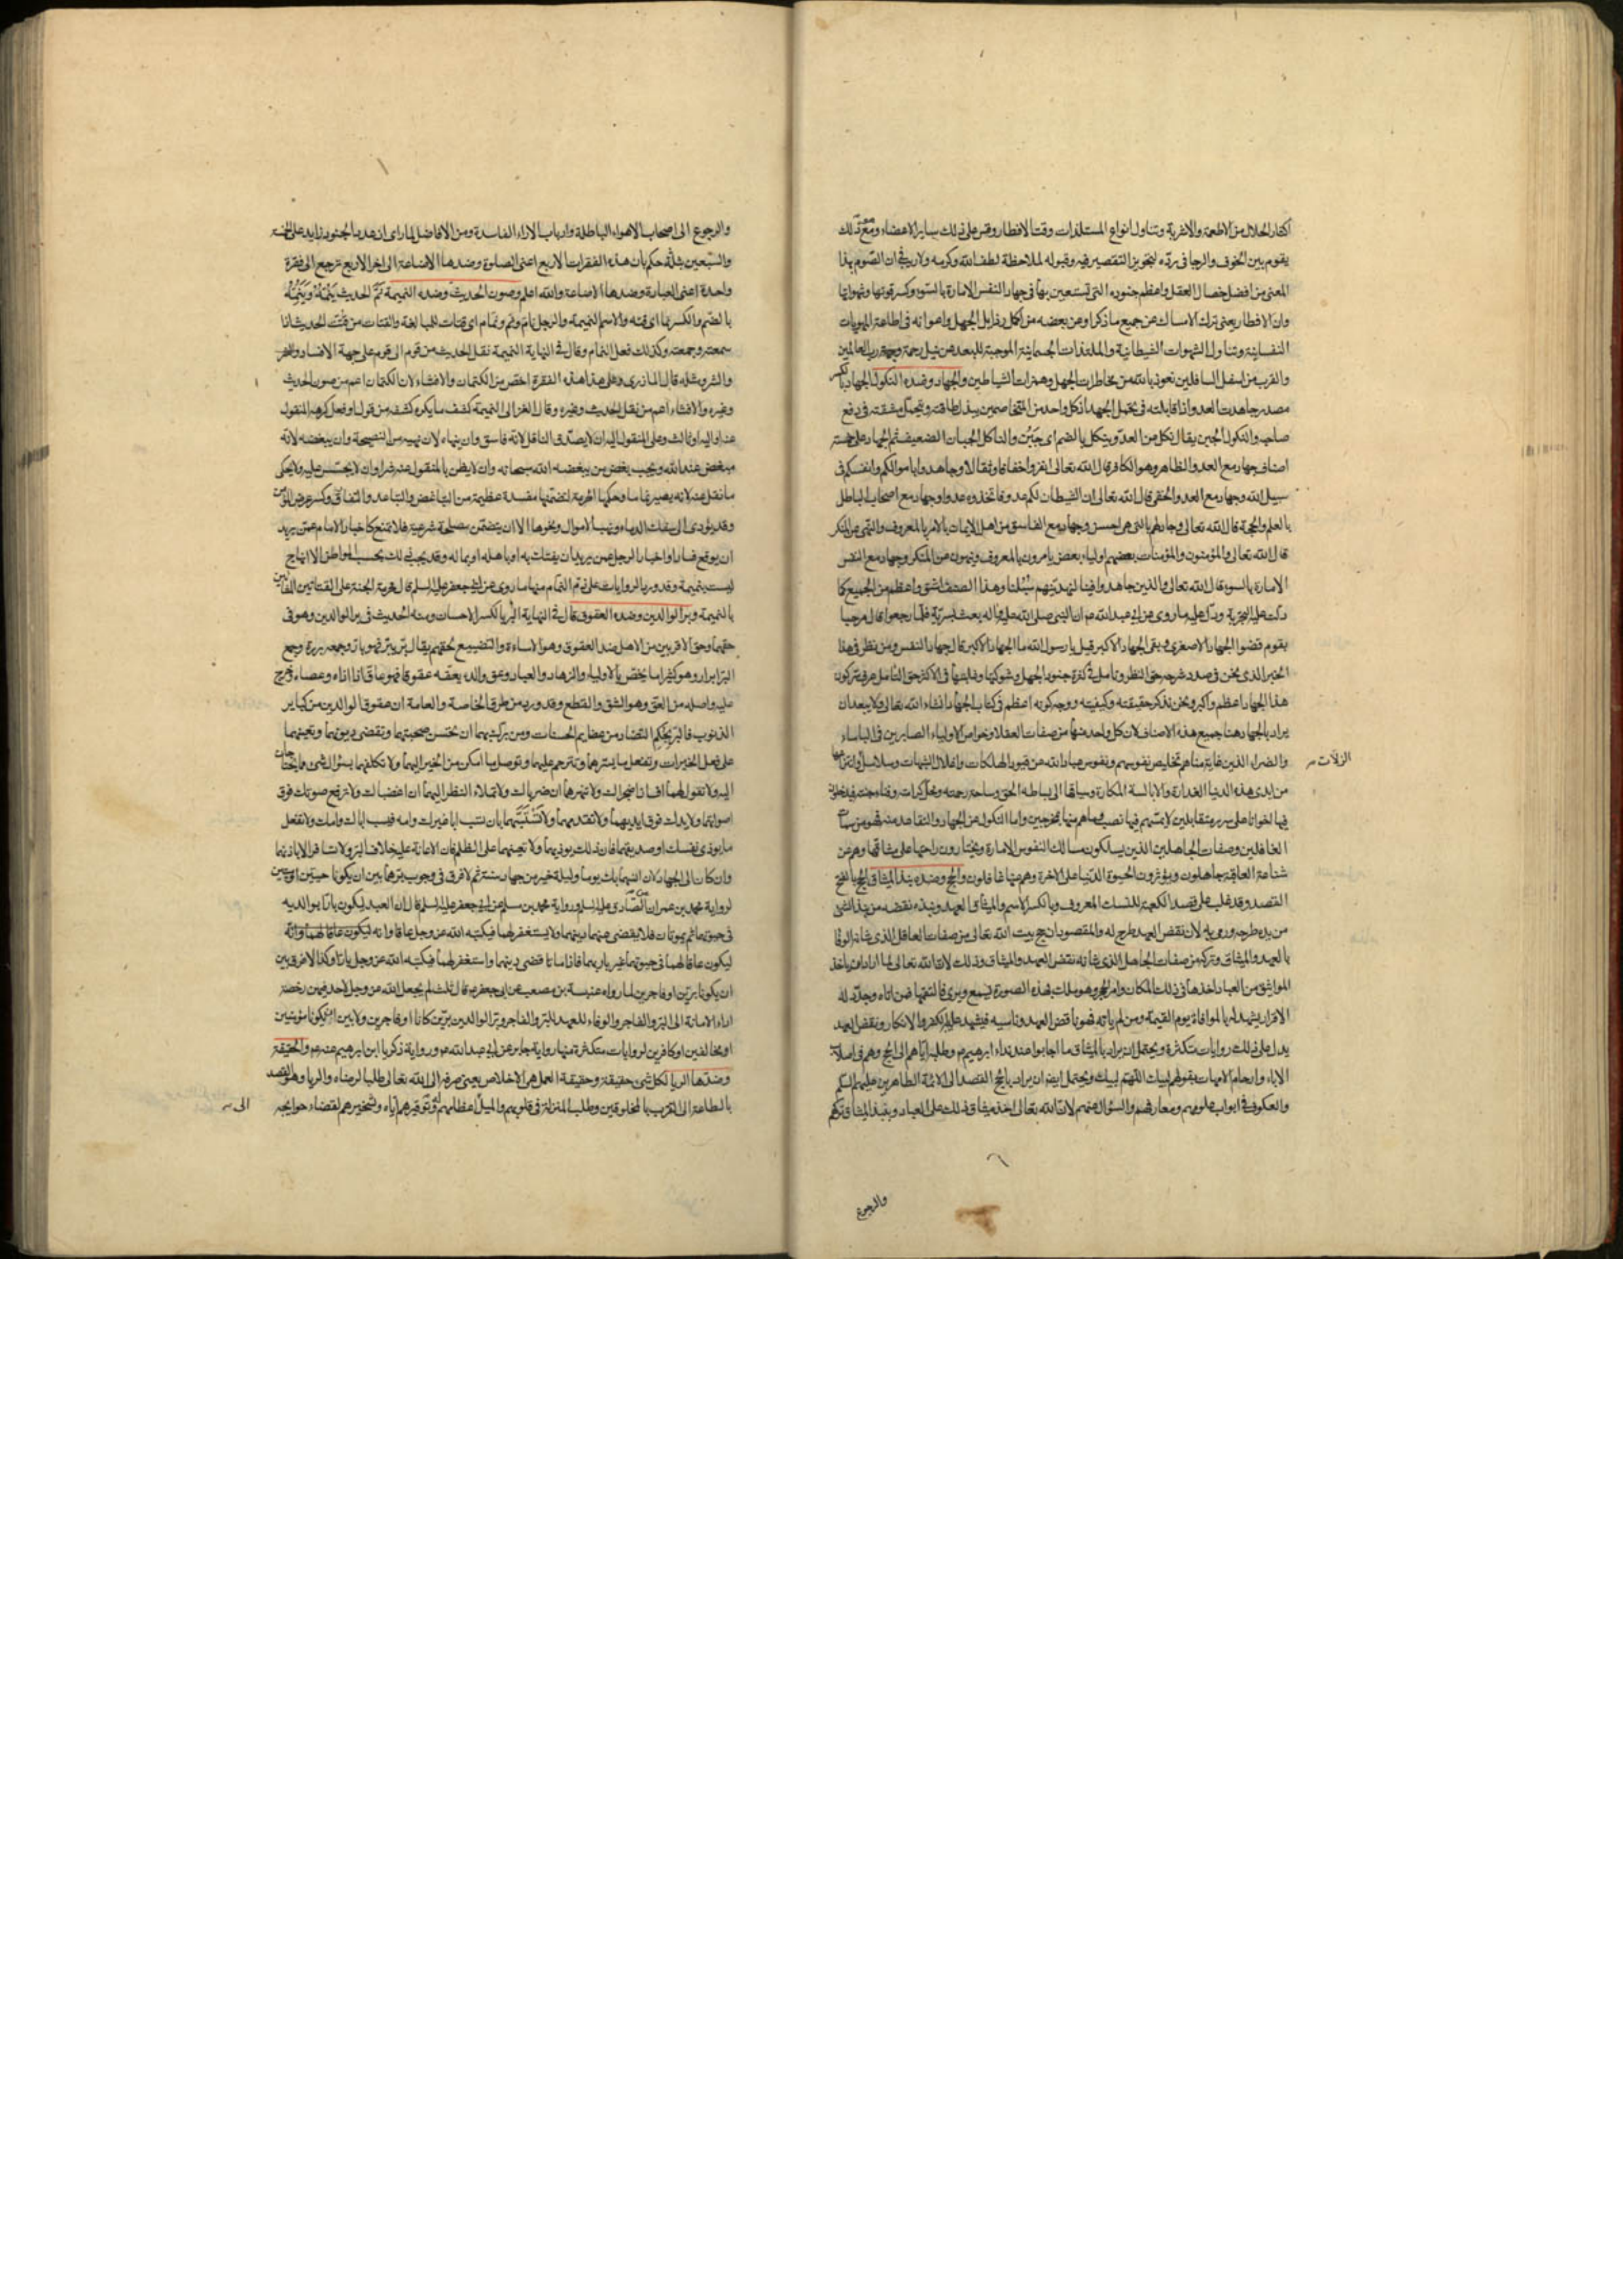 اكثار الحلال من الاطعمة والاشربة وتناول انواع المستلذات وقت الافطار وقس على ذلك ساير الاعضاء ومع ذلك
يقوم بين الخوف والرجا في رده لتجويز التقصير فيه وقبوله لملاحظة لطف الله وكرمه ولا ريب في ان الصوم بهذا
المعنى من افضل خصال العقل واعظم جنوده التي تستعين بها في جهاد النفس الامارة بالسوء وكسر قوتها وشهواتها
وان الافطار يعنى ترك الامساك عن جميع ما ذكر او عن بعضه من اكمل رذايل الجهل واعوانه في اطاعة المهويات
النفسانية وتناول الشهوات الشيطانية والملتذات الجسمانية الموجبة للبعد عن نيل رحمة رب العالمين
والقرب من اسفل السافلين نعوذ بالله من مخاطرات الجهل وهمزات الشياطين والجهاد وضده النكول الجهاد بالكسر
مصدر جاهدت العدو اذا قابلته في تحمل الجهد اذ كل واحد من المتخاصمين يبذل طاقته ويتحمل مشقته في دفع
صاحبه والنكول الجبن يقال نكل عن العدو ينكل بالضم اى جبن والناكل الجبان الضعيف ثم الجهاد على خمسة
اصناف جهاد مع العدو الظاهر وهو الكافر قال الله تعالى انفروا خفافا وثقالا وجاهدوا باموالكم وانفسكم في
سبيل الله وجهاد مع العدو الخفى قال الله تعالى ان الشيطان لكم عدو فاتخذوه عدوا وجهاد مع اصحاب الباطل
بالعلم والحجة قال الله تعالى وجادلهم بالتي هى احسن وجهاد مع الفاسق من اهل الايمان بالامر بالمعروف والنهى عن المنكر
قال الله تعالى والمؤمنون والمؤمنات بعضهم اولياء بعض يامرون بالمعروف وينهون عن المنكر وجهاد مع النفس
الامارة بالسوء قال الله تعالى والذين جاهدوا فينا لنهدينهم سبلنا وهذا الصنف اشق واعظم من الجميع كما
دلت عليه التجربة ودل عليه ما روى عن ابي عبد الله ع ان النبي صلى الله عليه واله بعث بسرية فلما رجعوا قال مرحبا
بقوم قضوا الجهاد الاصغر وبقى الجهاد الاكبر قيل يا رسول الله ما الجهاد الاكبر قال جهاد النفس ومن نظر في هذا
الخبر الذى نحن في صدد شرحه حق النظر وتامل في كثرة جنود الجهل وشوكتها وغلبتها في الاكثر حق التامل عرف سر كون
هذا الجهاد اعظم واكبر ونحن نذكر حقيقته وكيفيته ووجه كونه اعظم في كتاب الجهاد انشاء الله تعالى ولا يبعد ان
يراد بالجهاد هنا جميع هذه الاصناف لان كل واحد منها من صفات العقلا وخواص الاولياء الصابرين في الباساء
والضراء الذين غاية مناهم تخليص نفوسهم ونفوس عباد الله من قيود الهلكات واغلال الشبهات وسلاسل
الزلات
من ايدى هذه الدنيا الغدارة والابالسة المكارة وسياقها الى بساط الحق وساحة رحمته ومحل كرامته
فيها اخوانا على سرر متقابلين لا يمسهم فيها نصب وما هم منها بمخرجين واما النكول عن الجهاد والتقاعد عنه فهو من سمات
الغافلين وصفات الجاهلين الذين يسلكون مسالك النفوس الامارة ويختارون راحتها على مشاقها وهم عن
شناعة العاقبة جاهلون ويؤثرون الحيوة الدنيا على الاخرة وهم عنها غافلون والحج وضده نبذ الميثاق الحج بالفتح
القصد وقد غلب على قصد الكعبة للنسك المعروف وبالكسر الاسم والميثاق العهد ونبذه نقضه من نبذ الشئ
من يده طرحه ورمى به لان نقض العهد طرح له والمقصود ان حج بيت الله تعالى من صفات العاقل الذى شانه الوفا
بالعهد والميثاق وتركه من صفات الجاهل الذى شانه نقض العهد والميثاق وذلك لان الله تعالى لما اراد ان ياخذ
المواثيق من العباد اخذها في ذلك المكان وامر الحجر وهو ملك بهذه الصورة فسمع ويرى فالتقمها فمن اتاه وجدد له
الاقرار يشهد له بالموافاة يوم القيمة ومن لم ياته فهو ناقض العهد وناسيه فيشهد عليه بالكفر والانكار ونقض العهد
يدل على ذلك روايات متكثرة ويحتمل ان يراد بالميثاق ما اجابوا عند نداء ابرهيم ع وطلبه اياهم الى الحج وهم في اصلاب
الاباء وارحام الامهات بقولهم لبيك اللهم لبيك ويحتمل ايضا ان يراد بالحج القصد الى الائمة الطاهرين عليهم السلم
والعكوف في ابواب علومهم ومعارفهم والسؤال عنهم لان الله تعالى اخذ ميثاق ذلك على العباد وبنبذ الميثاق تركهم
والرجوع
والرجوع الى اصحاب الاهواء الباطلة وارباب الاراء الفاسدة ومن الافاضل لما راى ان عدد الجنود زايد على الخمسة
والسبعين بثلثه حكم بان هذه الفقرات الاربع اعنى الصلوة وضدها الاضاعة الى اخر الاربع ترجع الى فقرة
واحدة اعنى العبادة وضدها الاضاعة والله اعلم وصون الحديث وضده النميمة نم الحديث ينمه وينمه
بالضم والكسر نما اى قته والاسم النميمة والرجل نام ونم ونمام اى قتات للمبالغة والقتات من قتت الحديث اذا
سمعته وجمعته وكذلك فعل النمام وقال في النهاية النميمة نقل الحديث من قوم الى قوم على جهة الافساد والشر
والشر ومثله قال المازري وعلى هذا هذه الفقرة اخص من الكتمان والافشاء لان الكتمان اعم من صون الحديث
وغيره والافشاء اعم من نقل الحديث وغيره وقال الغزالى النميمة كشف ما يكره كشفه من قول او فعل كرهه المنقول
عنه او اليه او ثالث وعلى المنقول اليه ان لا يصدق الناقل لانه فاسق وان ينهاه لان نهيه من النصيحة وان يبغضه لانه
مبغض عند الله ويجب بغض من يبغضه الله سبحانه وان لا يظن بالمنقول عنه شرا وان لا يتجسس عليه ولا يحكى
ما نقل عنه لانه يصير نماما وحكمها الحرمة لتضمنها مفسدة عظيمة من التباغض والتباعد والنفاق وكسر عرض المؤمن
وقد يؤدى الى سفك الدماء ونهب الاموال ونحوها الا ان يتضمن مصلحة شرعية فلا تمنع كاخبار الامام عمن يريد
ان يوقع فسادا واخبار الرجل عمن يريد ان يفتك به او باهله او بماله وقد يجب ذلك بحسب المواطن
ليست بنميمة وقد ورد الروايات على ذم النمام منها ما روى عن ابي جعفر عليه السلم قال محرمة الجنة على القتاتين المشائين
بالنميمة وبر الوالدين وضده العقوق قال في النهاية البر بالكسر الاحسان ومنه الحديث في بر الوالدين وهو في
حقهما وحق الاقربين من الاهل ضد العقوق وهو الاساءة والتضييع لحقهم يقال بر يبر فهو بار وجمعه بررة وجمع
البر ابرار وهو كثيرا ما يختص بالاولياء والزهاد والعباد وعق والده يعقه عقوقا فهو عاق اذا اذاه وعصاه وخرج
عليه واصله من العق وهو الشق والقطع وقد ورد من طرق الخاصة والعامة ان عقوق الوالدين من كباير
الذنوب فالبر بحكم التضاد من عظايم الحسنات ومن بركتهما ان تحسن صحبتهما وتقضى ديونهما وتعينهما
على فعل الخيرات وتفعل ما يسرهما وتترحم عليهما وتوصل ما امكن من الخير اليهما ولا تكلفهما بسؤال شئ مما يحتاجان
اليه ولا تقول لهما اف ان اضجراك ولا تنهرهما ان ضرباك ولا تملاء النظر اليهما ان اغضباك ولا ترفع صوتك فوق
اصواتهما ولا يدك فوق ايديهما ولا تقدمهما ولا تستسبهما بان تسب ابا غيرك وامه فيسب اباك وامك ولا تفعل
ما يوذى نفسك او صديقهما فان ذلك يوذيهما ولا تعينهما على الظلم فان الاعانة عليه خلاف البر ولا تسافر الا باذنهما
وان كان الى الجهاد لان انسهما بك يوما وليلة خير من جهاد سنة ثم لا فرق في وجوب برهما بين ان يكونا حيين او ميتين
لرواية محمد بن عمران عن الصادق عليه السلم ورواية محمد بن مسلم عن ابي جعفر عليه السلم قال ان العبد ليكون بارا بوالديه
في حيوتهما ثم يموتان فلا يقضى عنهما دينهما ولا يستغفر لهما فيكتبه الله عز وجل عاقا وانه
ليكون عاقا لهما في حيوتهما غير بار بهما فاذا ماتا قضى دينهما واستغفر لهما فيكتبه الله عز وجل بارا وكذا لا فرق بين
ان يكونا برين او فاجرين لما رواه عنبسة بن مصعب عن ابي جعفر ع قال ثلث لم يجعل الله عز وجل لاحد فيهن رخصة
اداء الامانة الى البر والفاجر والوفاء للعهد للبر والفاجر وبر الوالدين برين كانا او فاجرين ولا بين ان يكونا مؤمنين
او مخالفين او كافرين لروايات متكثرة منها رواية جابر عن ابي عبد الله ع ورواية زكريا ابن ابرهيم عنه ع والحقيقة
وضدها الريا لكل شئ حقيقة وحقيقة العمل هى الاخلاص يعنى صرفه الى الله تعالى طلبا لرضاه والريا وهو القصد
بالطاعة الى التقرب بالمخلوقين وطلب المنزلة في قلوبهم والميل الى اعظامهم له وتوقيرهم اياه وتسخيرهم لقضاء حوايجه
الى